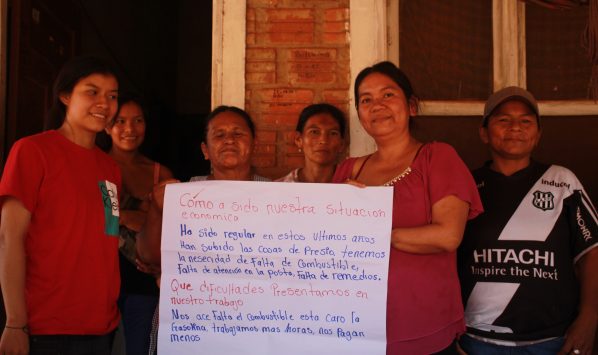 Cómo a sido nuestra situación
economica
Ha sido regular en estos ultimos años
Han subido las cosas de Presio, tenemos
la nesecidad de Falta de combustible,
Falta de atencion en la posta, falta de remedios.
Que dificultades Presentamos en
nuestro trabajo
Nos ace Falta el combustible esta caro la
Gasolina, trabajamos mas horas, nos Pagan
menos
inducol
HITACHI
Inspire the Next